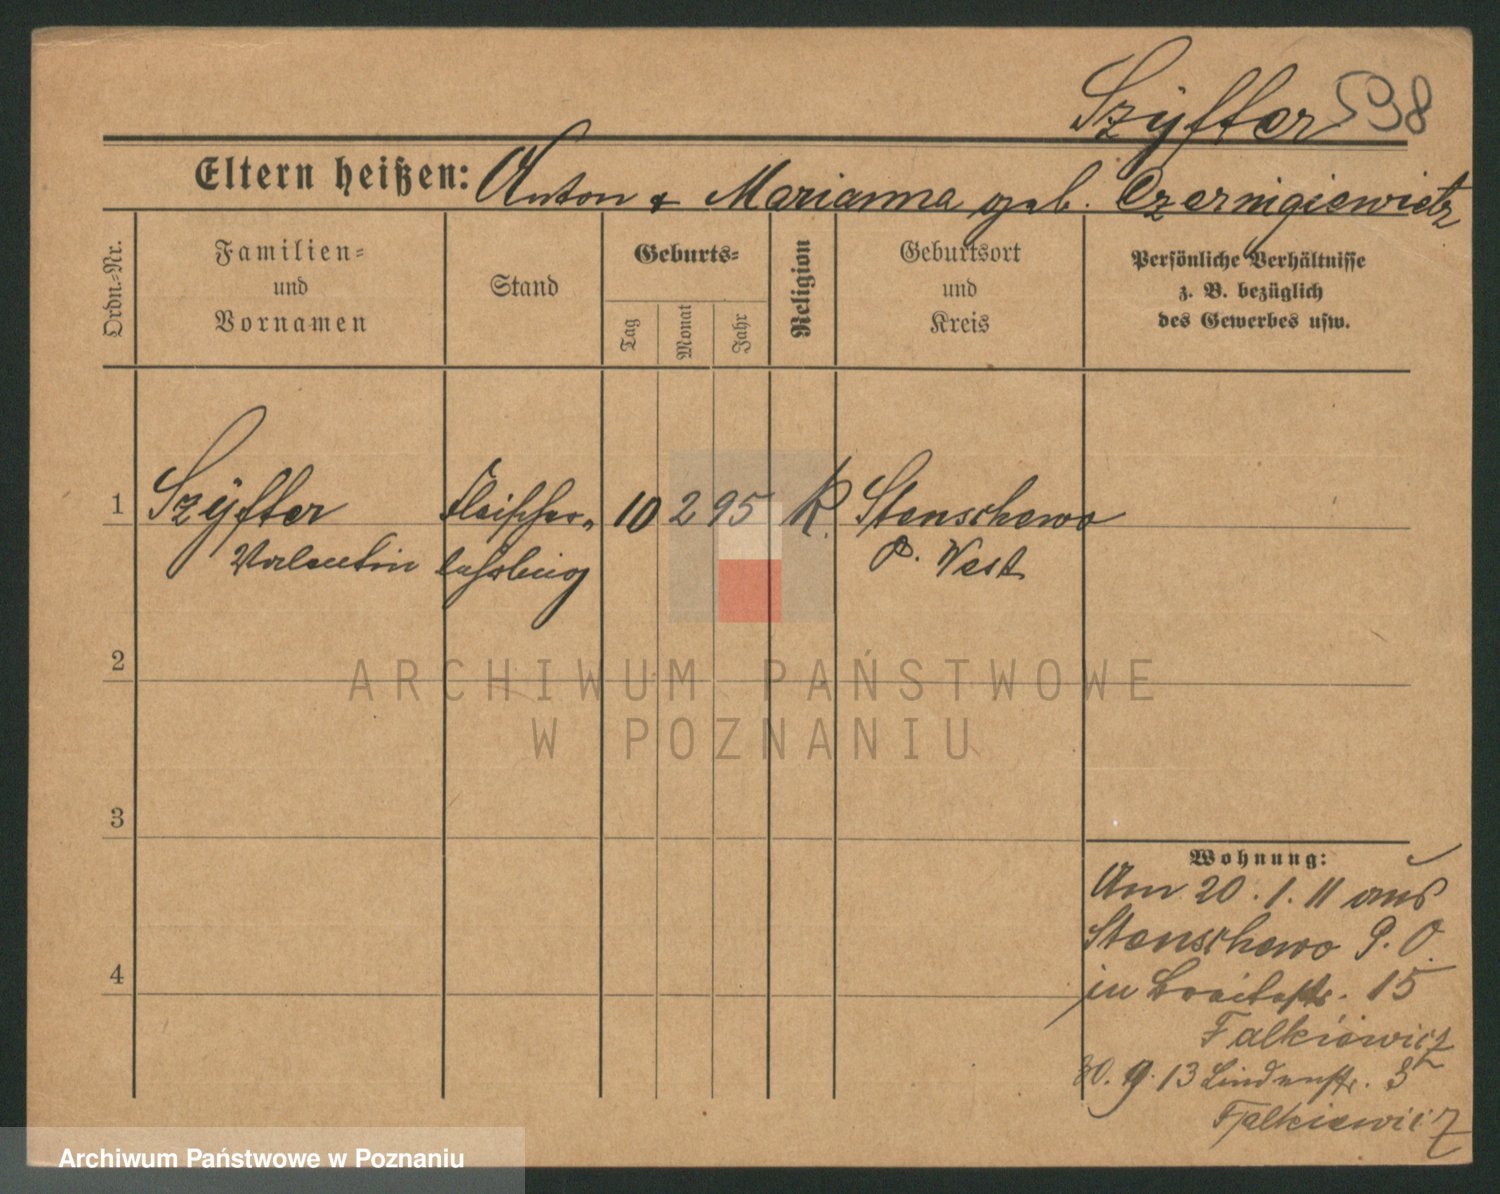 Szÿffer 598
Eltern heißen: Anton & Marianna geb. Czernigiewietz
Ordn.-Nr.
Familien-
und
Vornamen
Stand
Geburts-
Tag
Monat
Jahr
Religion
Geburtsort
und
Kreis
Persönliche Verhältnisse
z. B. bezüglich
des Gewerbes usw.
1 Szÿffer Fleischer- 10 2 95 K. Stenschewo
Valentin lehrling P. West
2
3
4
Wohnung:
Am 20.1.11 aus
Stenschewo P. O.
in Breitestr. 15
Falkiewicz
30. 9. 13 Lindenstr. 3
Falkiewicz
ARCHIWUM PAŃSTWOWE
W POZNANIU
Archiwum Państwowe w Poznaniu